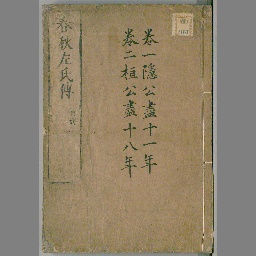 卷一隱公盡十一年
卷二桓公盡十八年
春秋左氏傳